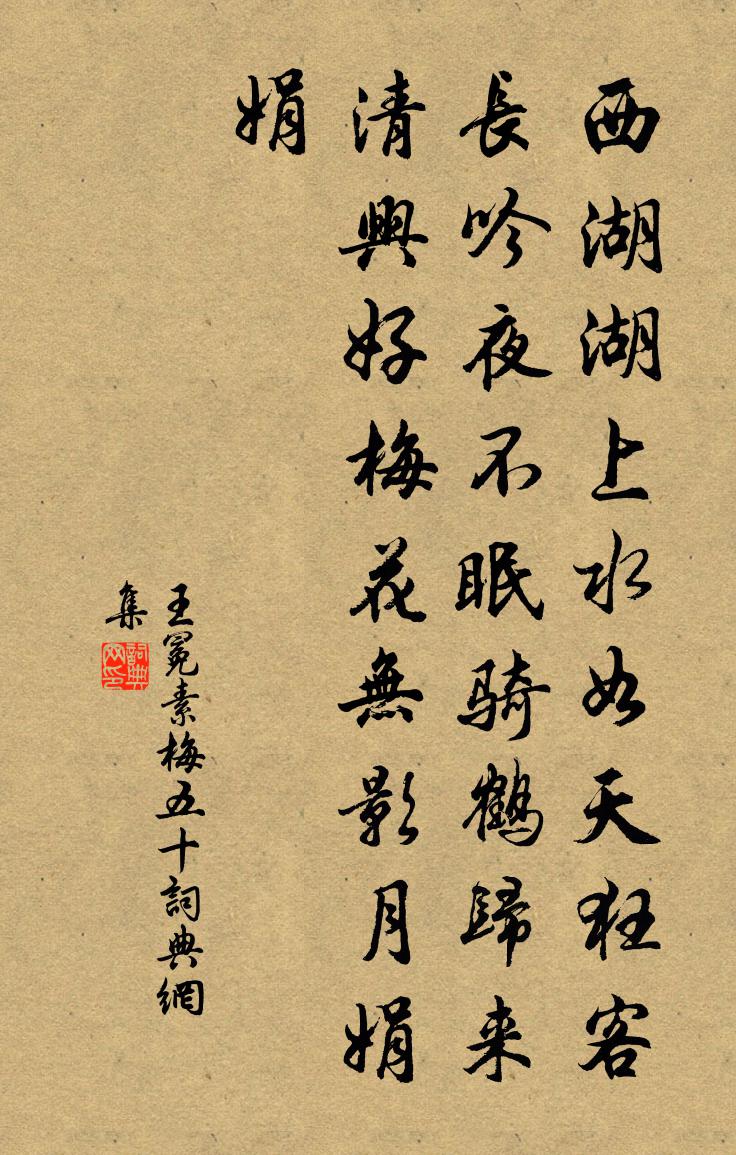 西湖湖上水如天狂客
長吟夜不眠騎鶴歸来
清興好梅花無影月娟
娟
王冕素梅五十詞典網
集
詞典
网印